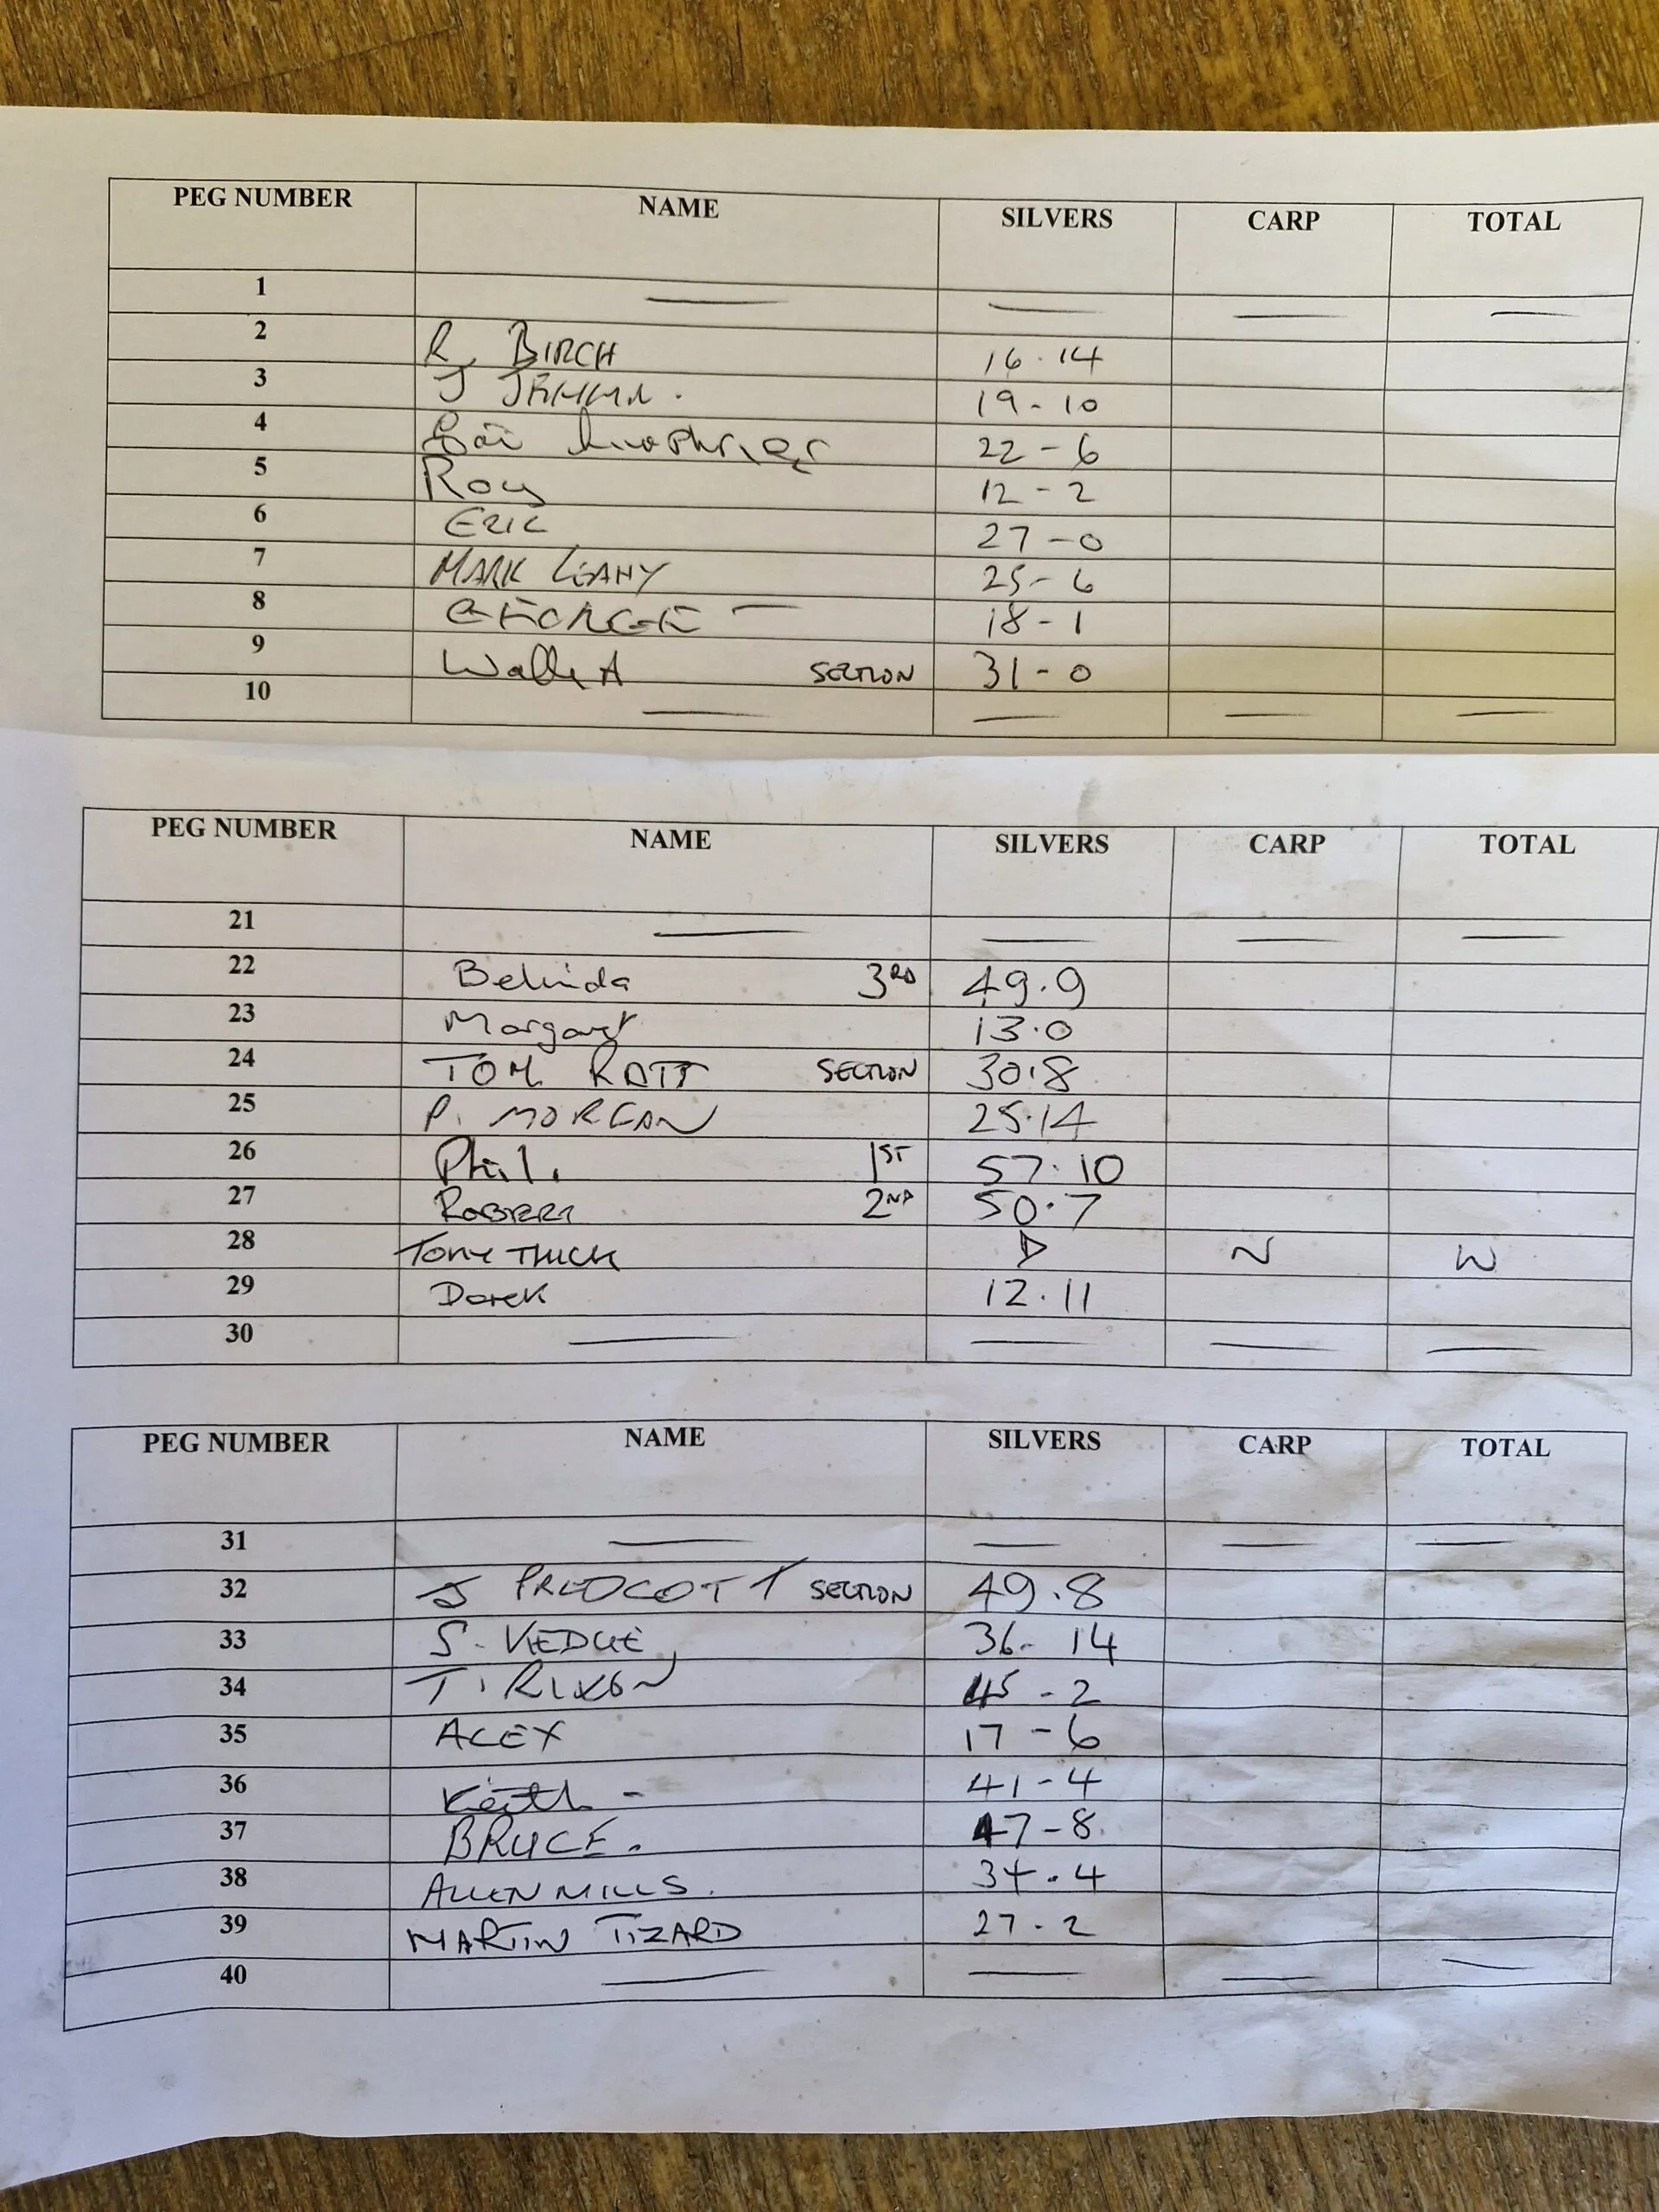 PEG NUMBER NAME SILVERS CARP TOTAL
1
2 R. BIRCH 16.14
3 J 19-10
4 22-6
5 Roy 12-2
6 ERIC 27-0
7 MARK LEAHY 25-6
8 GEORGE 18-1
9 SECTION 31-0
10
PEG NUMBER NAME SILVERS CARP TOTAL
21
22 Belinda 3RD 49.9
23 Margaret 13.0
24 TOM SECTION 30.8
25 P. MORGAN 25.14
26 Phil. 1ST 57.10
27 2ND 50.7
28 TONY THICK D N W
29 Derek 12.11
30
PEG NUMBER NAME SILVERS CARP TOTAL
31
32 J SECTION 49.8
33 S. 36-14
34 T. RIXON 45-2
35 ALEX 17-6
36 Keith - 41-4
37 BRUCE. 47-8
38 ALLEN MILLS. 34.4
39 MARTIN TIZARD 27-2
40